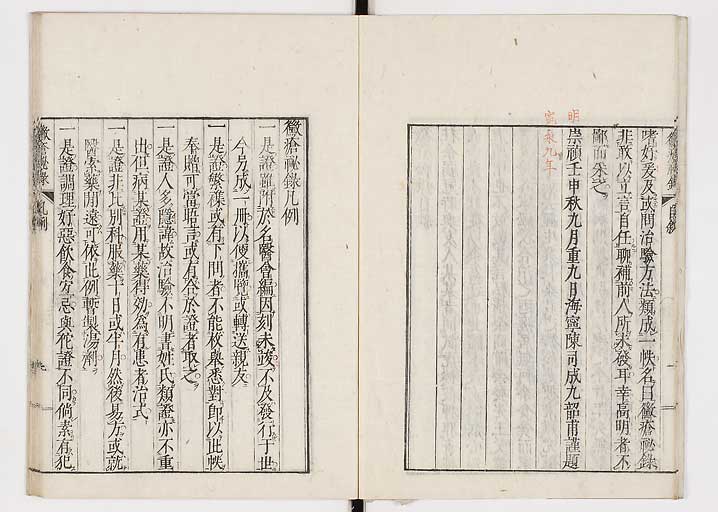 嗜好爰及或問治驗方法類成一帙名曰黴瘡祕錄
非敢以立言自任聊補前人所未發耳幸高明者不
鄙而采之
崇禎壬申秋九月重九日海寧陳司成九韶甫謹題
明
寬永九年
黴瘡祕錄凡例
一是證雖附於名醫會編因刻未竣不及發行于世
今另成一冊以便攜覽或轉送親友
一是證繁深或有下問者不能枚舉悉對即以此帙
奉贈可當晤言或有合於證者取之
一是證人多隱諱故治驗不明書姓氏類證亦不重
出但病某證用某藥得効為有患者治式
一是證非比別科服藥十日或半月然後易方或就
醫索藥所遠可依此例暫製湯劑
一是證調理好惡飲食宜忌與他證不同倘素有犯
黴瘡祕錄 凡例